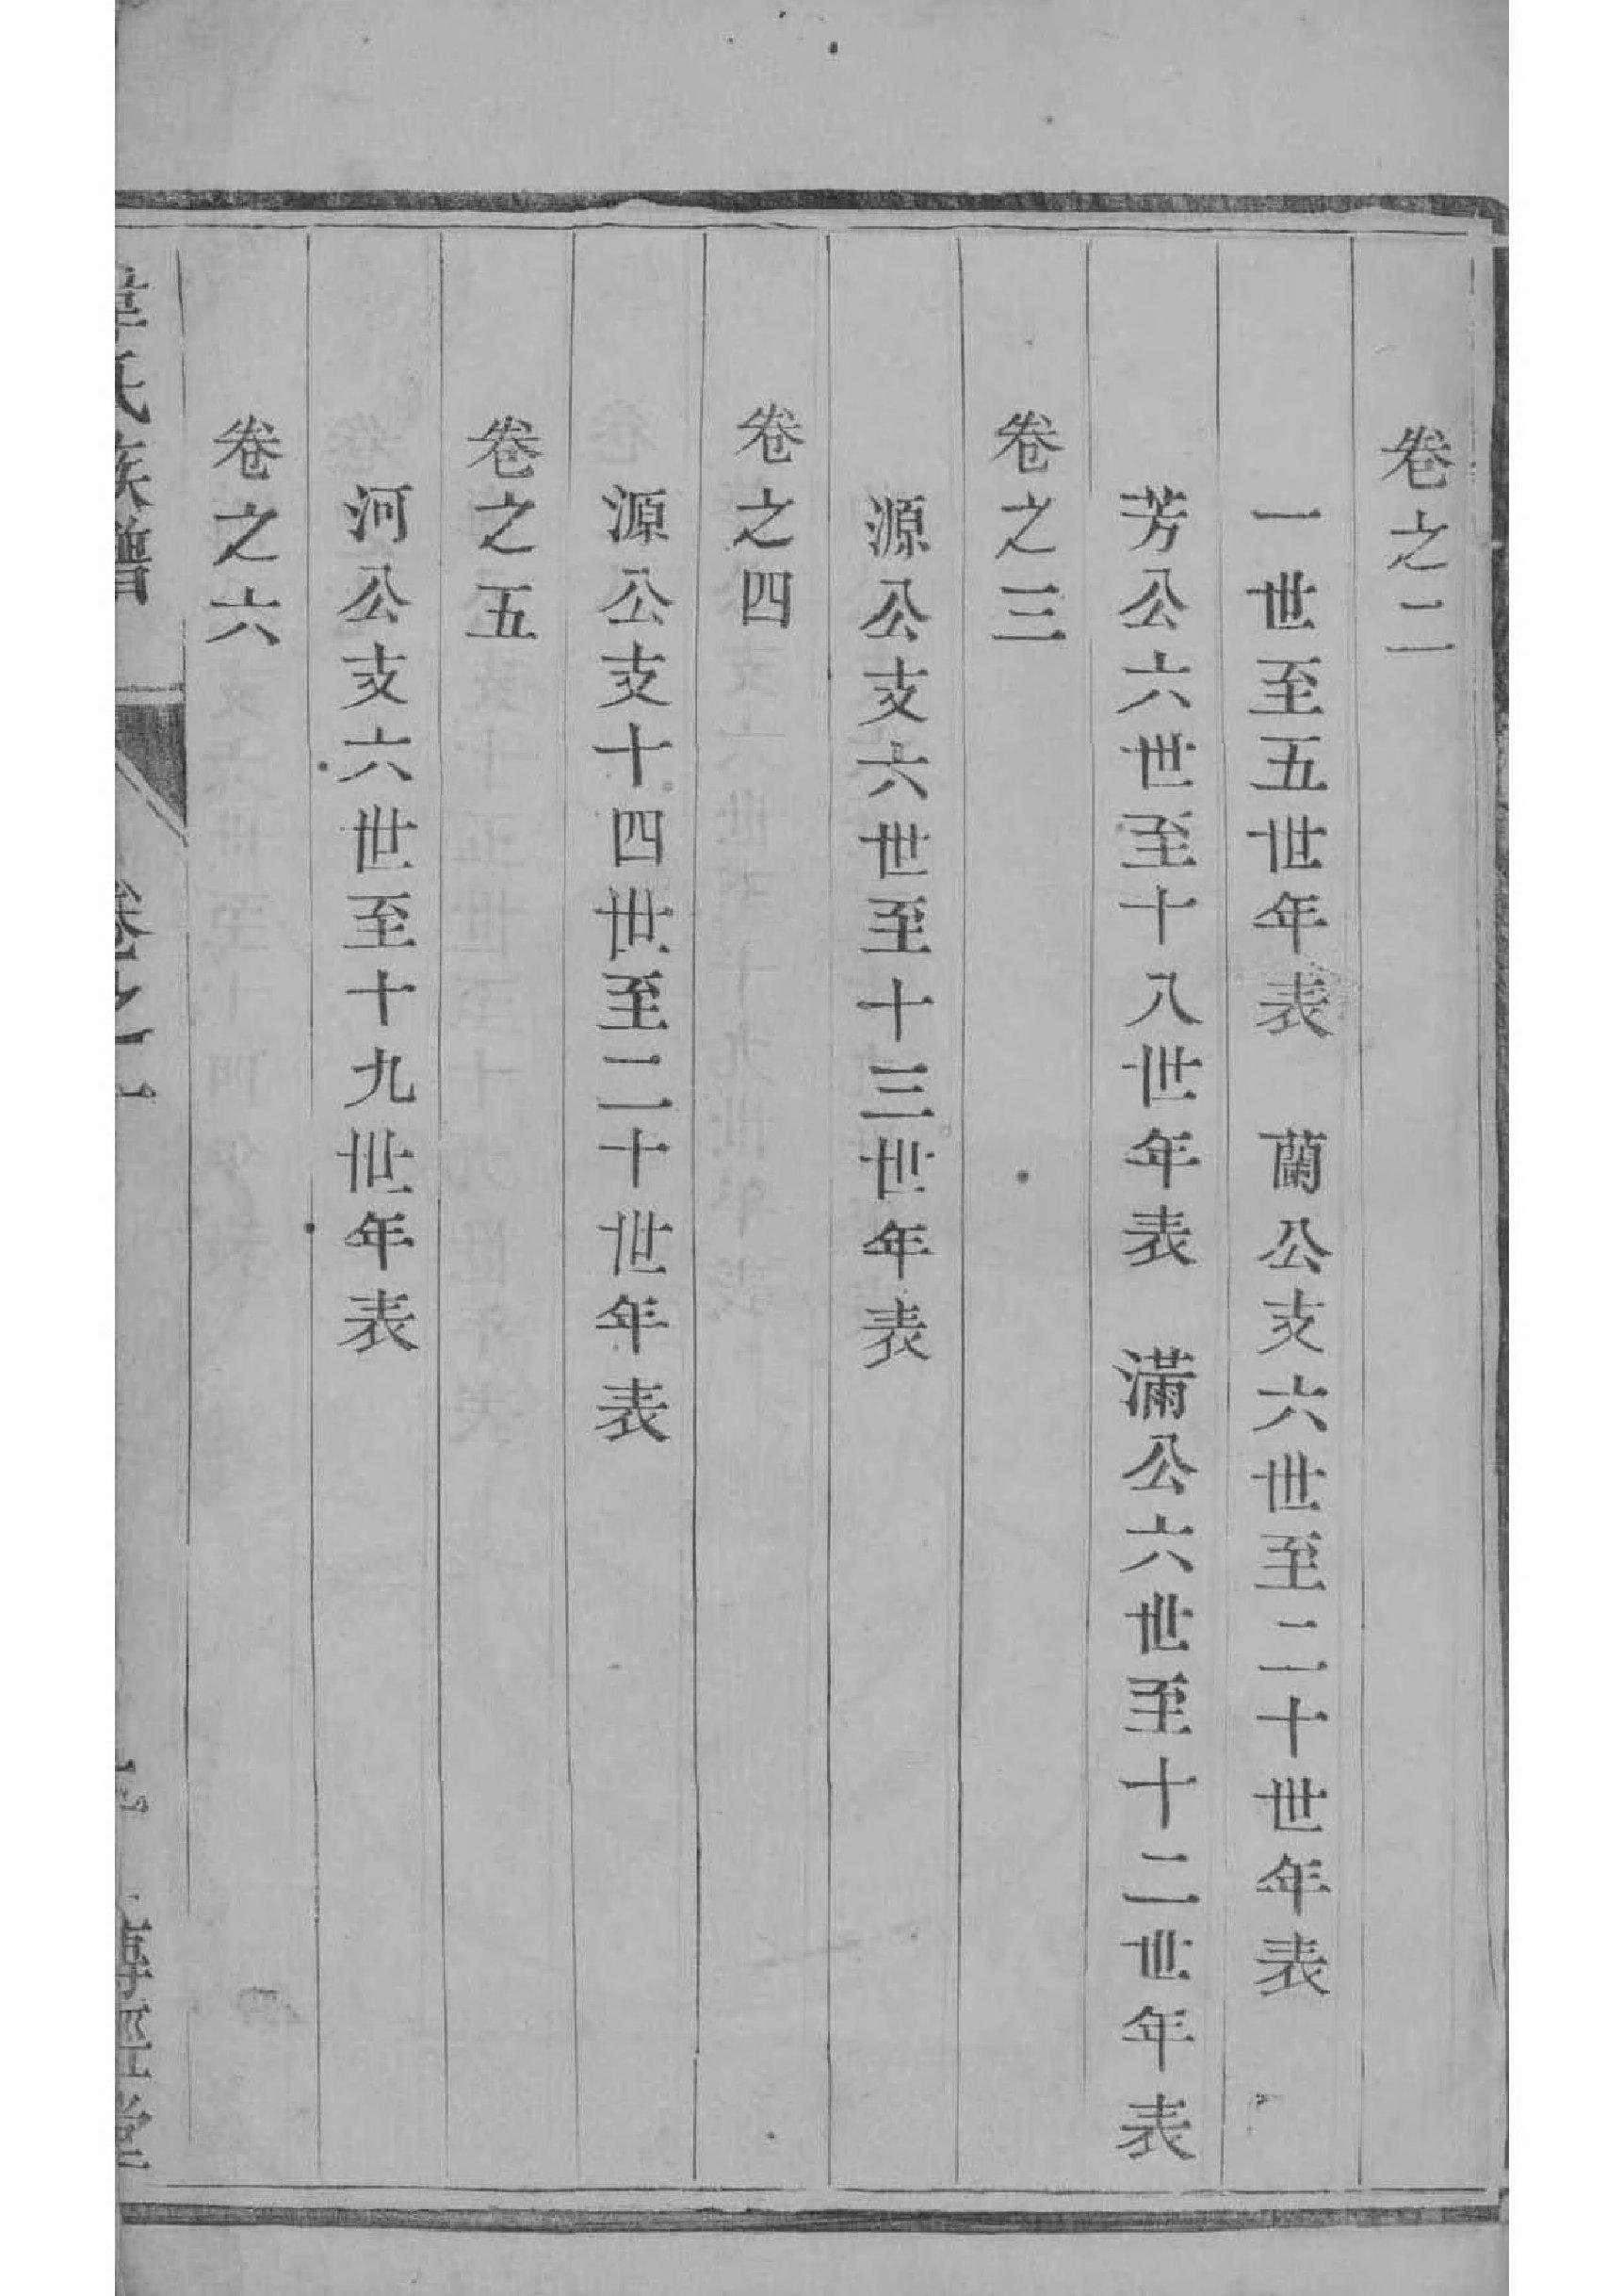 卷之二
一世至五世年表　蘭公支六世至二十世年表
芳公六世至十八世年表　滿公六世至十二世年表
卷之三
源公支六世至十三世年表
卷之四
源公支十四世至二十世年表
卷之五
河公支六世至十九世年表
卷之六
氏族譜
卷之